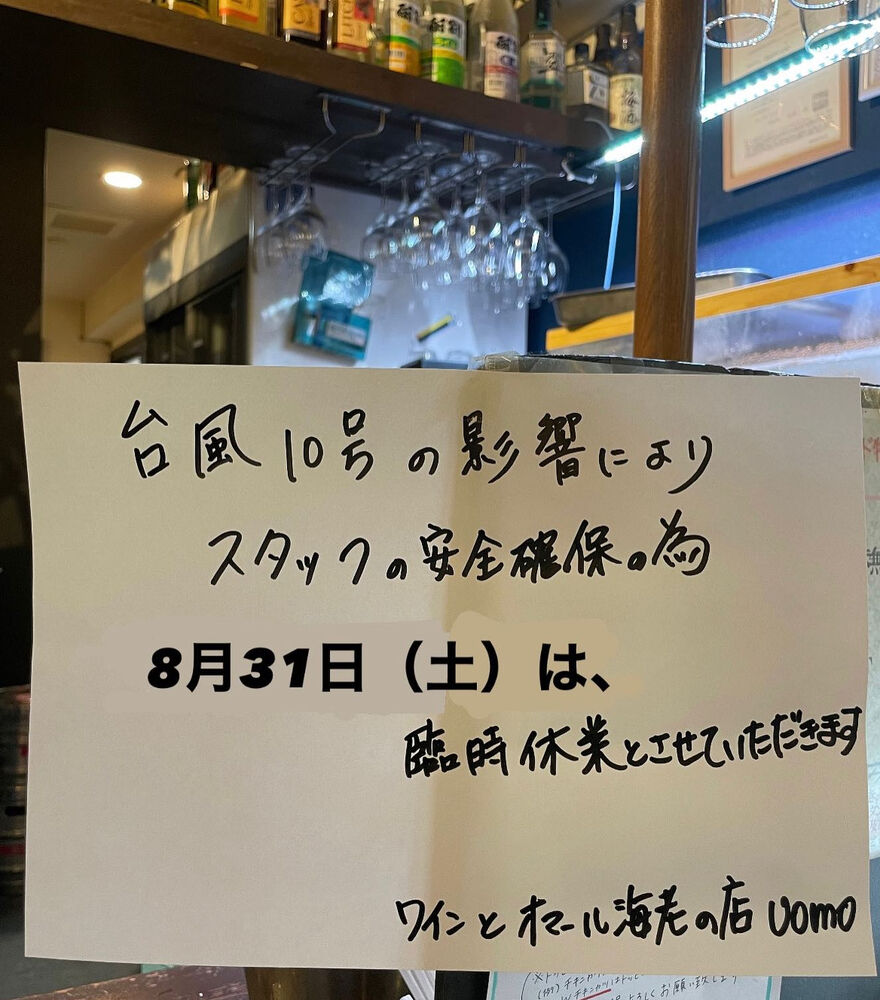 台風10号の影響により
スタッフの安全確保の為
8月31日（土）は、
臨時休業とさせていただきます
ワインとオマール海老の店 uomo